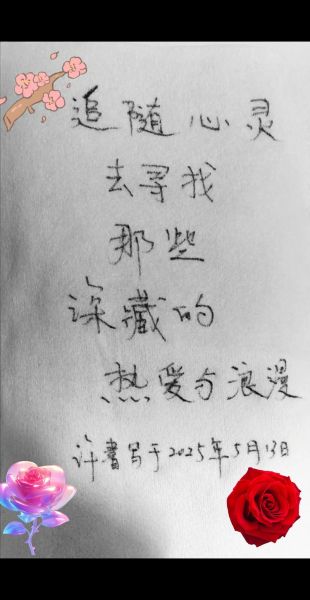 追随心灵
去寻找
那些
深藏的
热爱与浪漫
许書写于2025年5月13日